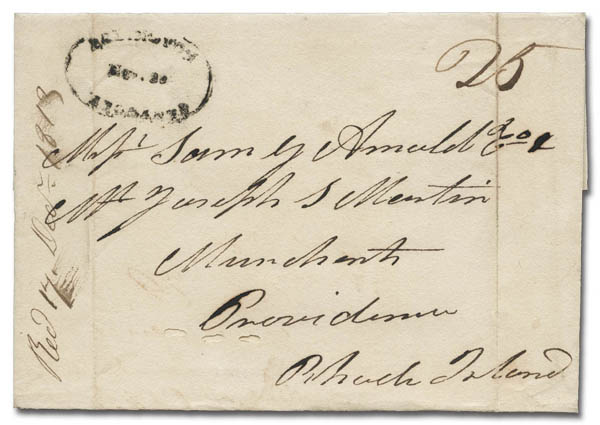 25
Messrs Sam G Arnold & Co
Mr Joseph S Martin
Merchants
Providence
Rhode Island
Recd 17 Decr 1818